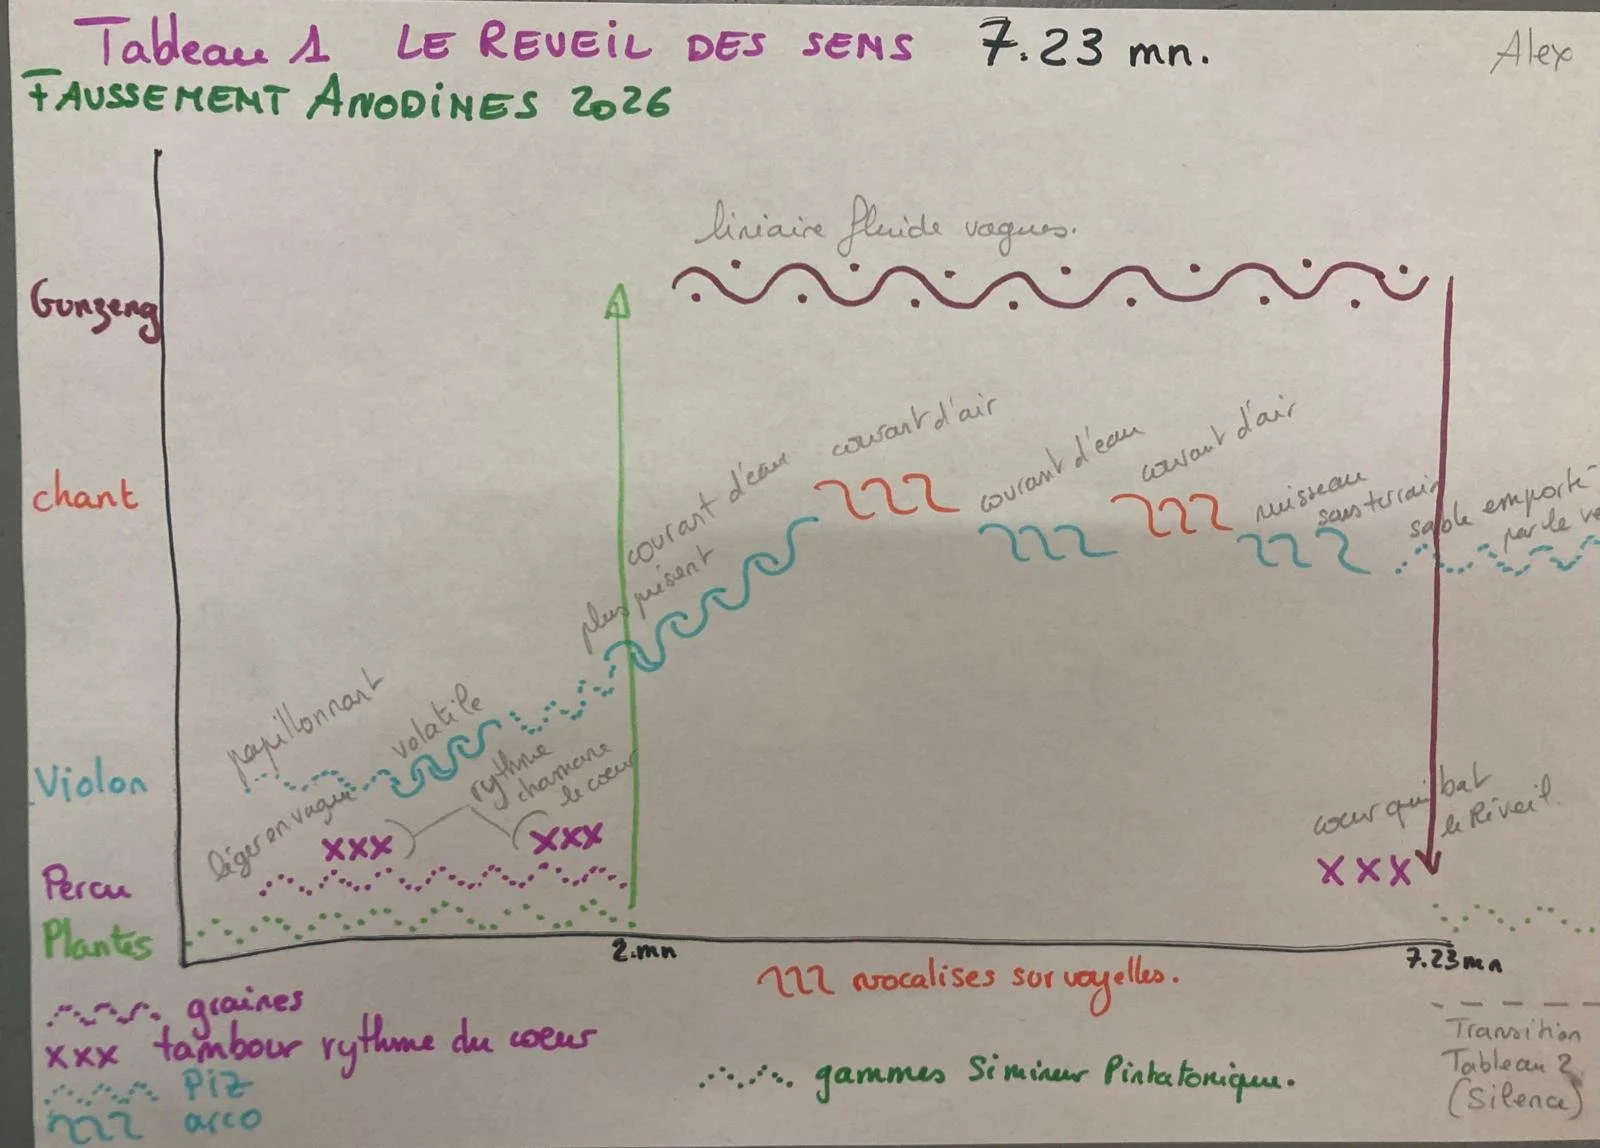 Tableau 1 LE REVEIL DES SENS 7.23 mn.
Alex
FAUSSEMENT ANODINES 2026
liniaire fluide vagues.
Gunzeng
courant d'air
courant d'air
courant d'eau
chant
courant d'eau
plus présent
ruisseau
sousterrain
sable emporté
par le ve
papillonnant
volatile
Violon
rythme
chamane
le coeur
léger en vague
xxx
xxx
coeur qui bat
le Réveil.
Percu
xxx
Plantes
2.mn
7.23mn
vocalises sur voyelles.
graines
xxx tambour rythme du coeur
Piz
arco
gammes Si mineur Pintatonique.
Transition
Tableau 2
(Silence)